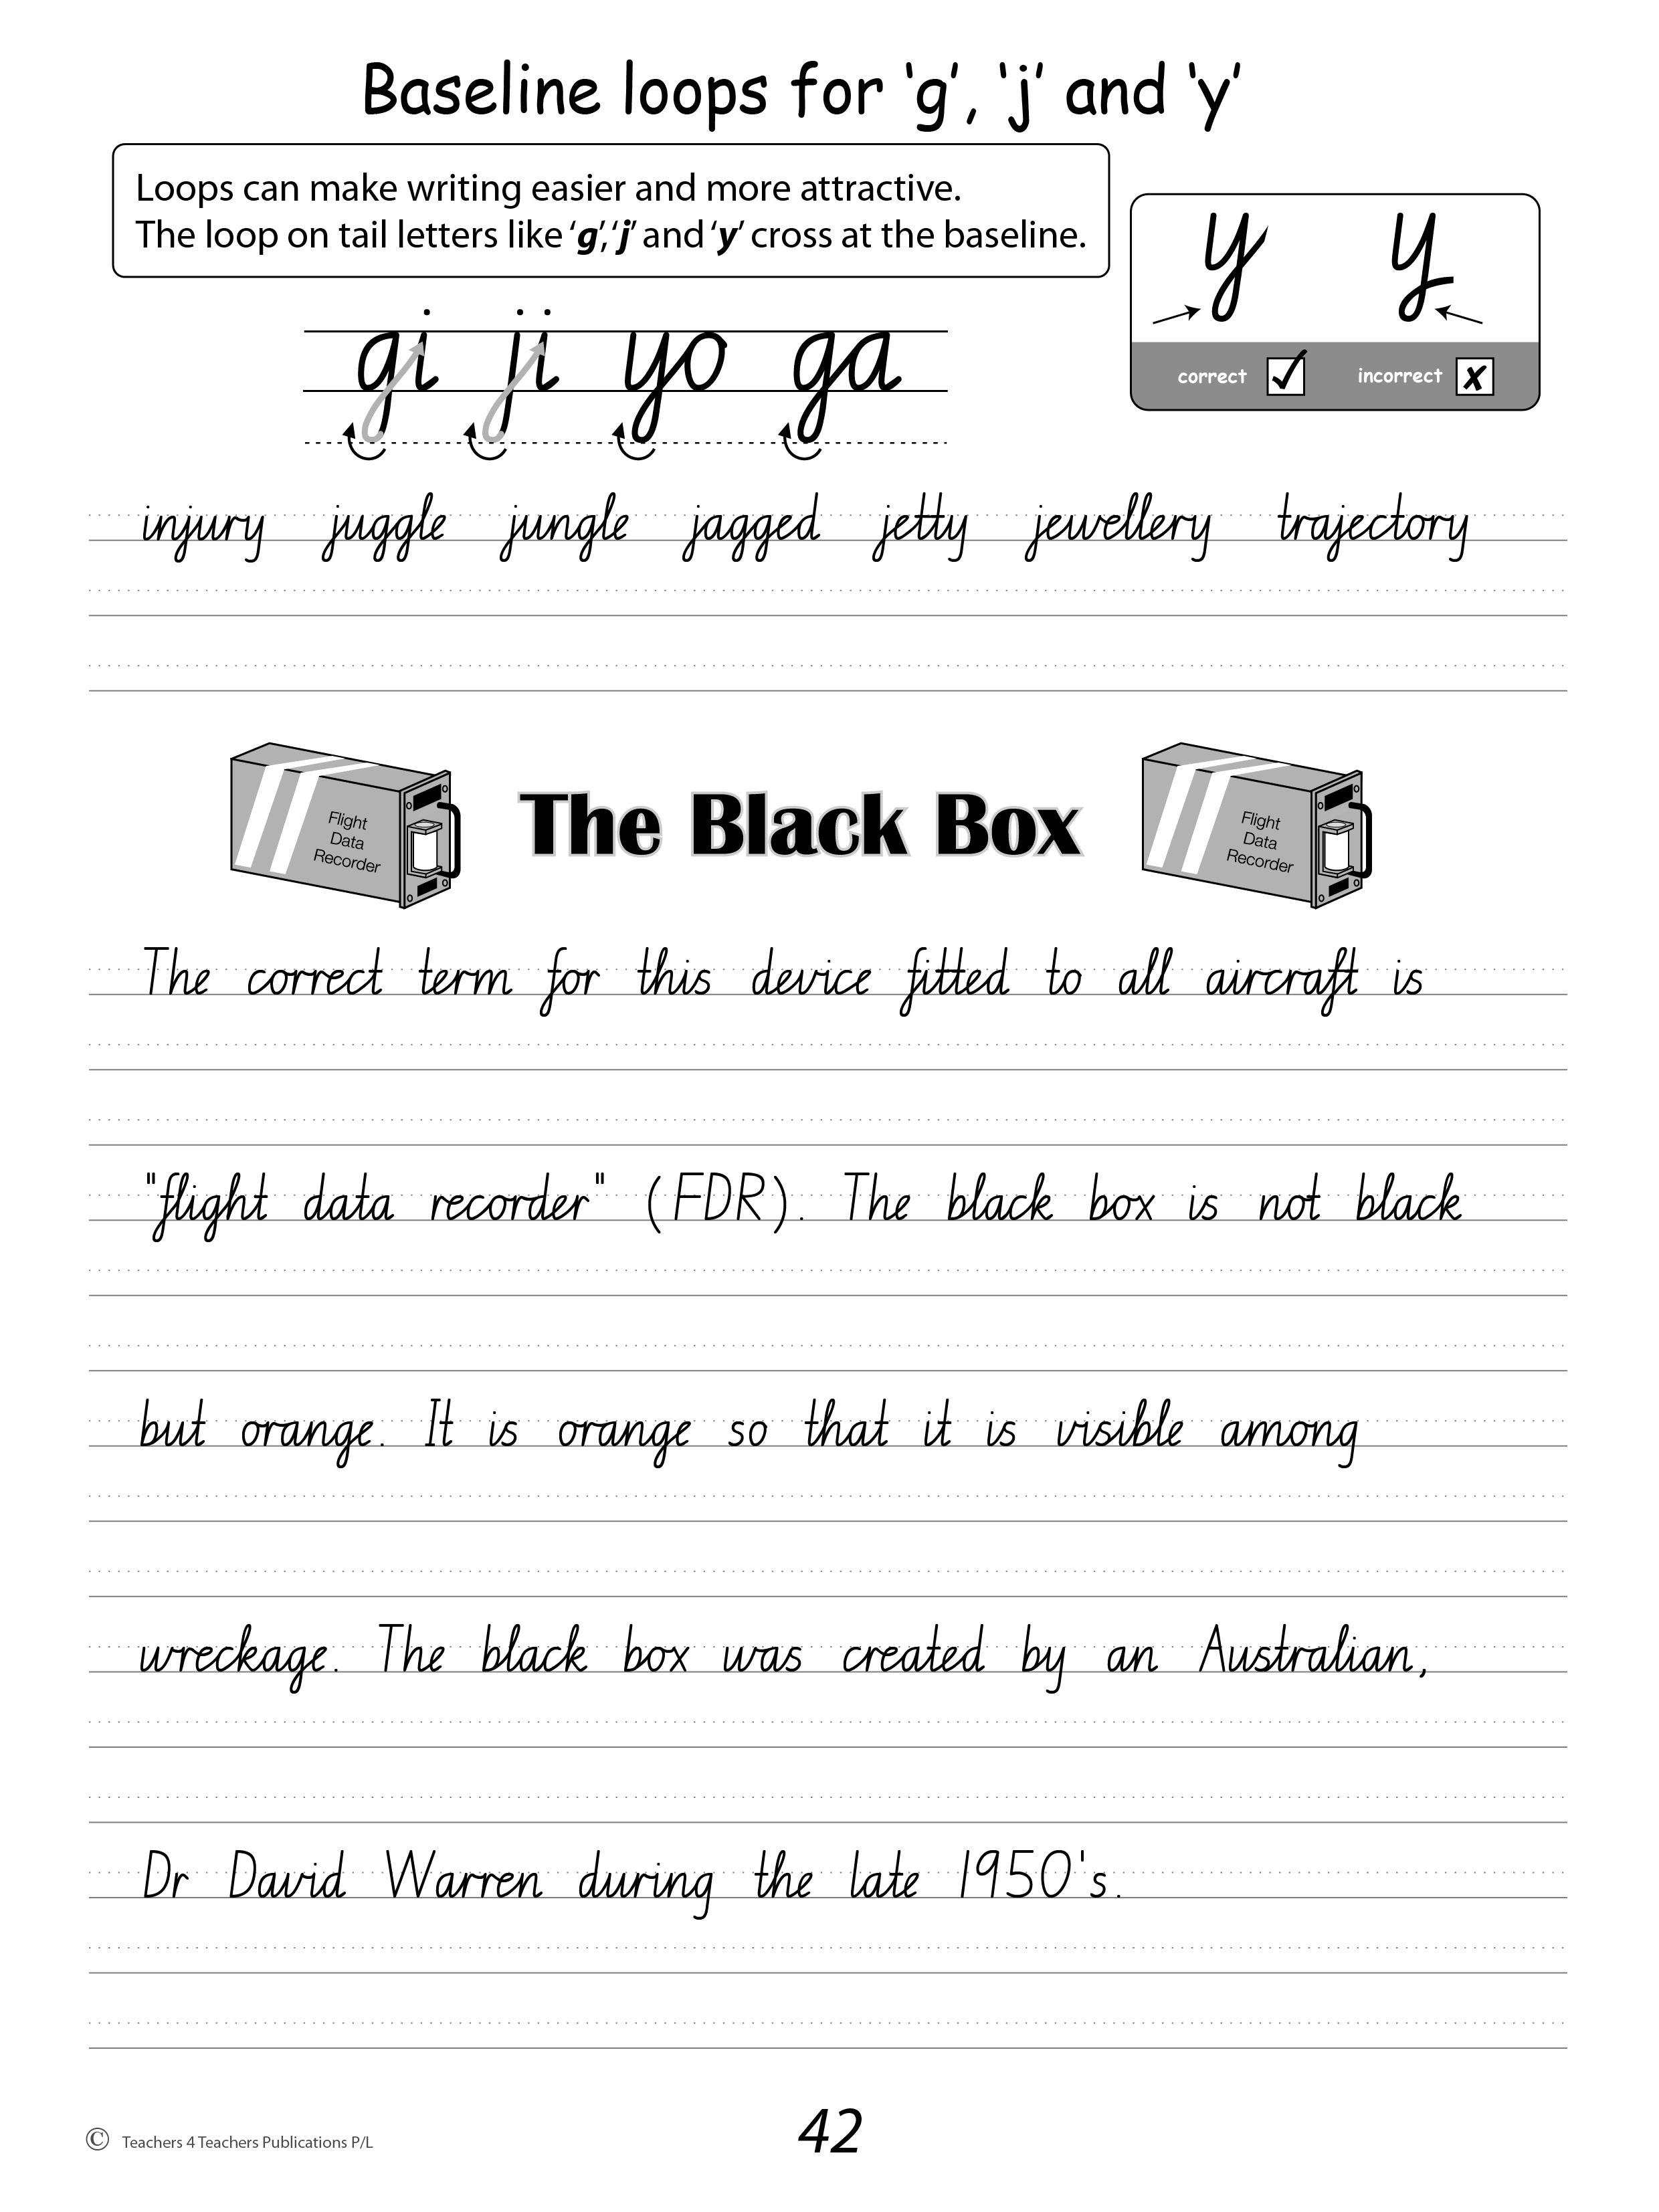 Baseline loops for ‘g’, ‘j’ and ‘y’
Loops can make writing easier and more attractive.
The loop on tail letters like ‘g’, ‘j’ and ‘y’ cross at the baseline.
y y
correct incorrect
gi ji yo ga
injury juggle jungle jagged jetty jewellery trajectory
Flight
Data
Recorder
The Black Box
Flight
Data
Recorder
The correct term for this device fitted to all aircraft is
"flight data recorder" (FDR). The black box is not black
but orange. It is orange so that it is visible among
wreckage. The black box was created by an Australian,
Dr David Warren during the late 1950's.
© Teachers 4 Teachers Publications P/L
42